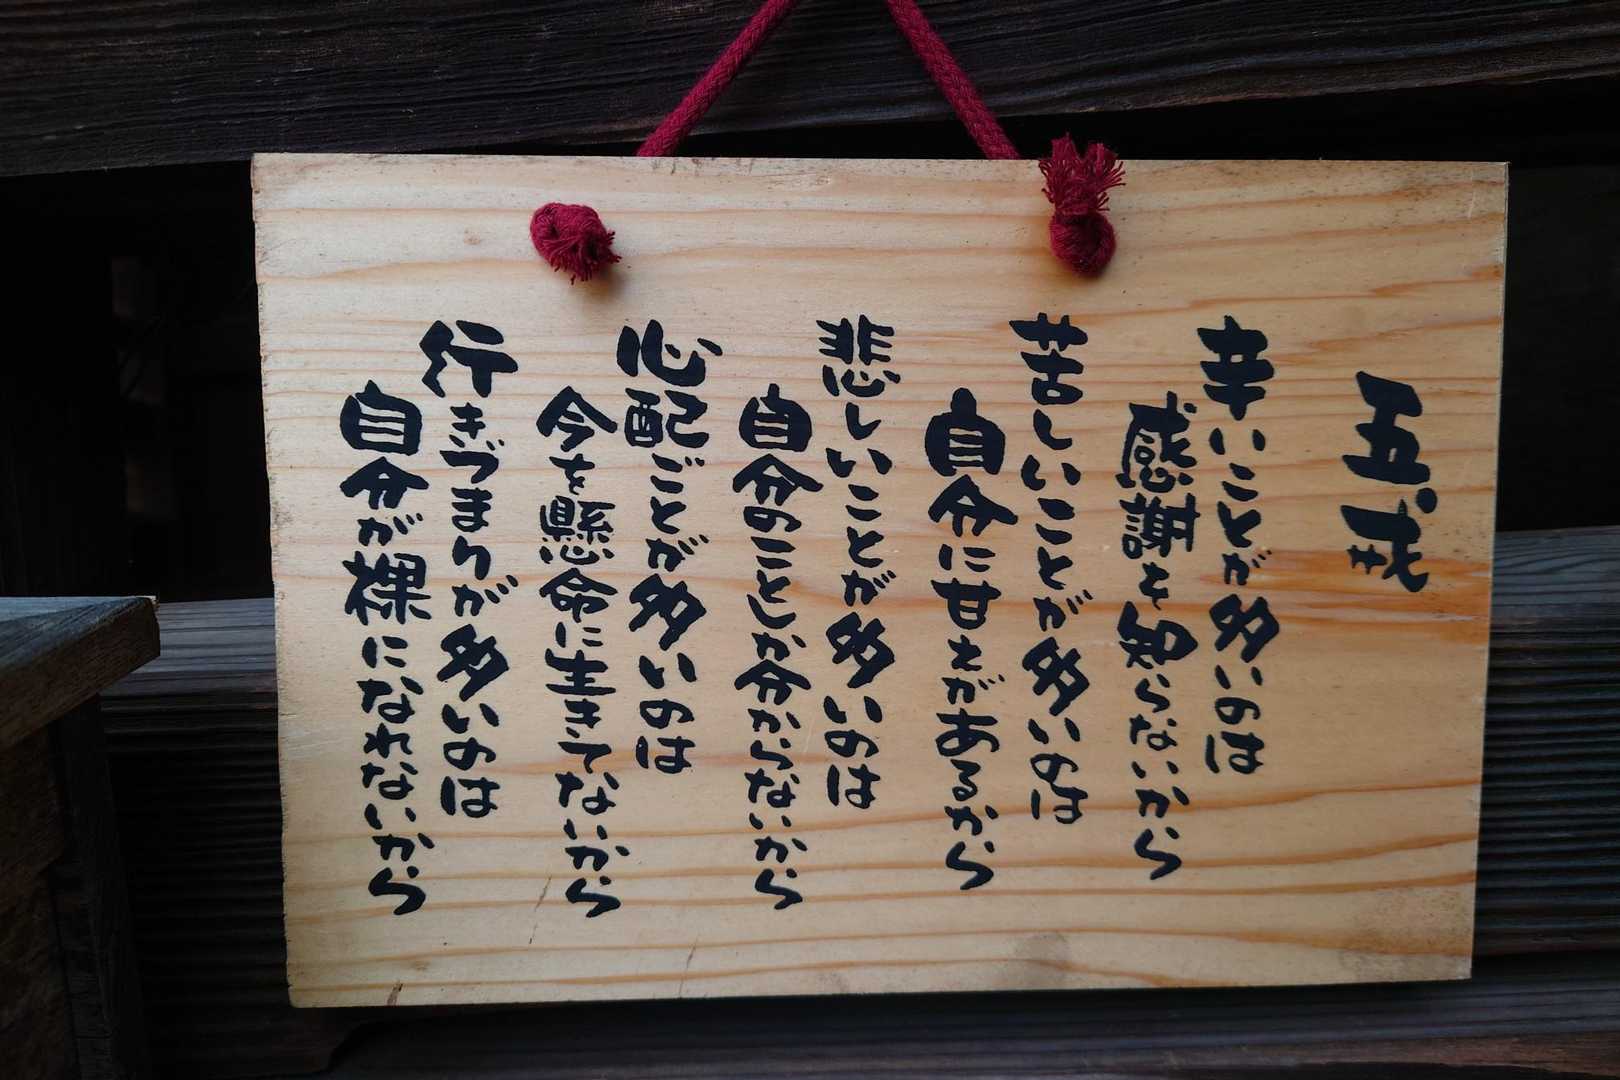 五戒
辛いことが多いのは
感謝を知らないから
苦しいことが多いのは
自分に甘えがあるから
悲しいことが多いのは
自分のことしか分からないから
心配ごとが多いのは
今を懸命に生きてないから
行きづまりが多いのは
自分が裸になれないから